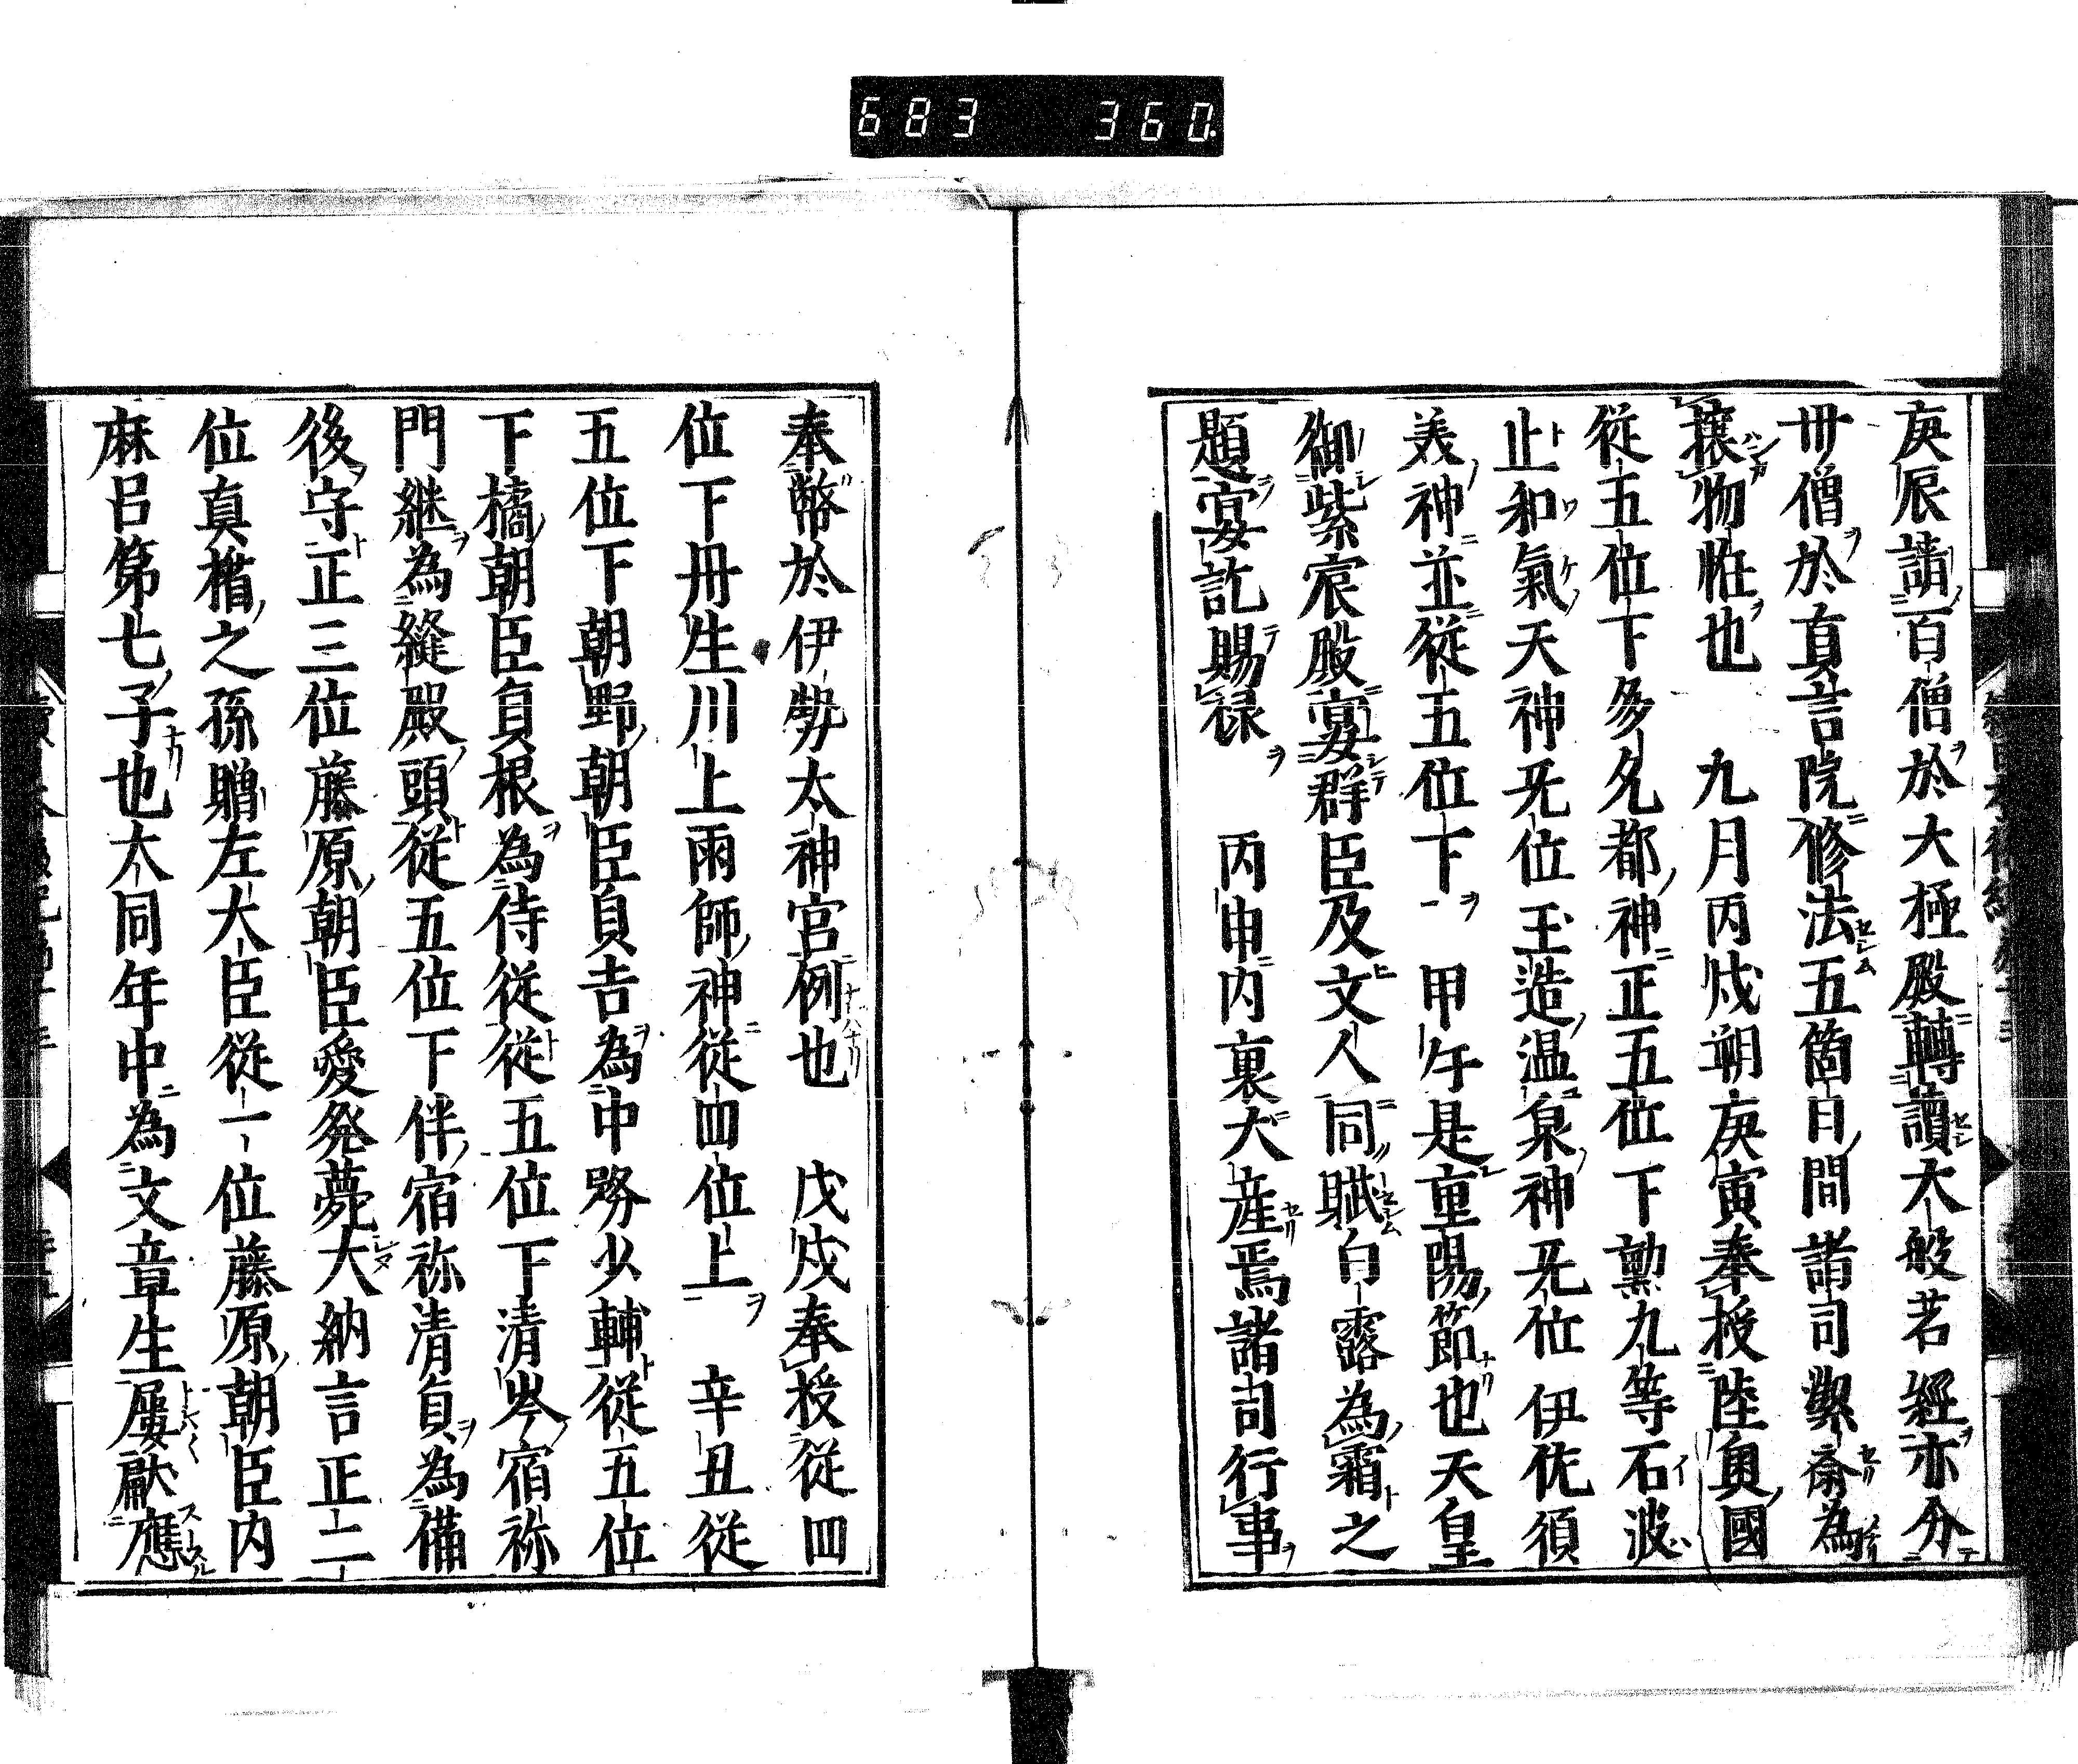 683 360
庚辰請百僧於大極殿轉讀大般若經亦分
卅僧於真言院修法五箇日間諸司潔齋為
攘物恠也　九月丙戌朔庚寅奉授陸奧國
從五位下勇多久都神正五位下勳九等石波
止和氣天神无位玉造温泉神无位伊佐須
美神並從五位下　甲午是重陽節也天皇
御紫宸殿宴群臣及文人同賦白露為霜之
題宴訖賜祿　丙申内裏犬産焉諸司行事
奉幣於伊勢太神宮例也　戊戌奉授從四
位下丹生川上雨師神從四位上　辛丑從
五位下朝野朝臣貞吉為中務少輔從五位
下橘朝臣負根為侍從從五位下清岑宿祢
門継為縫殿頭從五位下伴宿祢清貞為備
後守正三位藤原朝臣愛発薨大納言正二
位真楯之孫贈左大臣從一位藤原朝臣内
麻呂第七子也大同年中為文章生屢献應